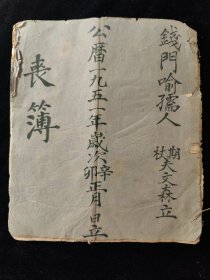 錢門喻孺人
杖期夫文森立
公曆一九五一年歲次辛卯正月 日立
喪簿